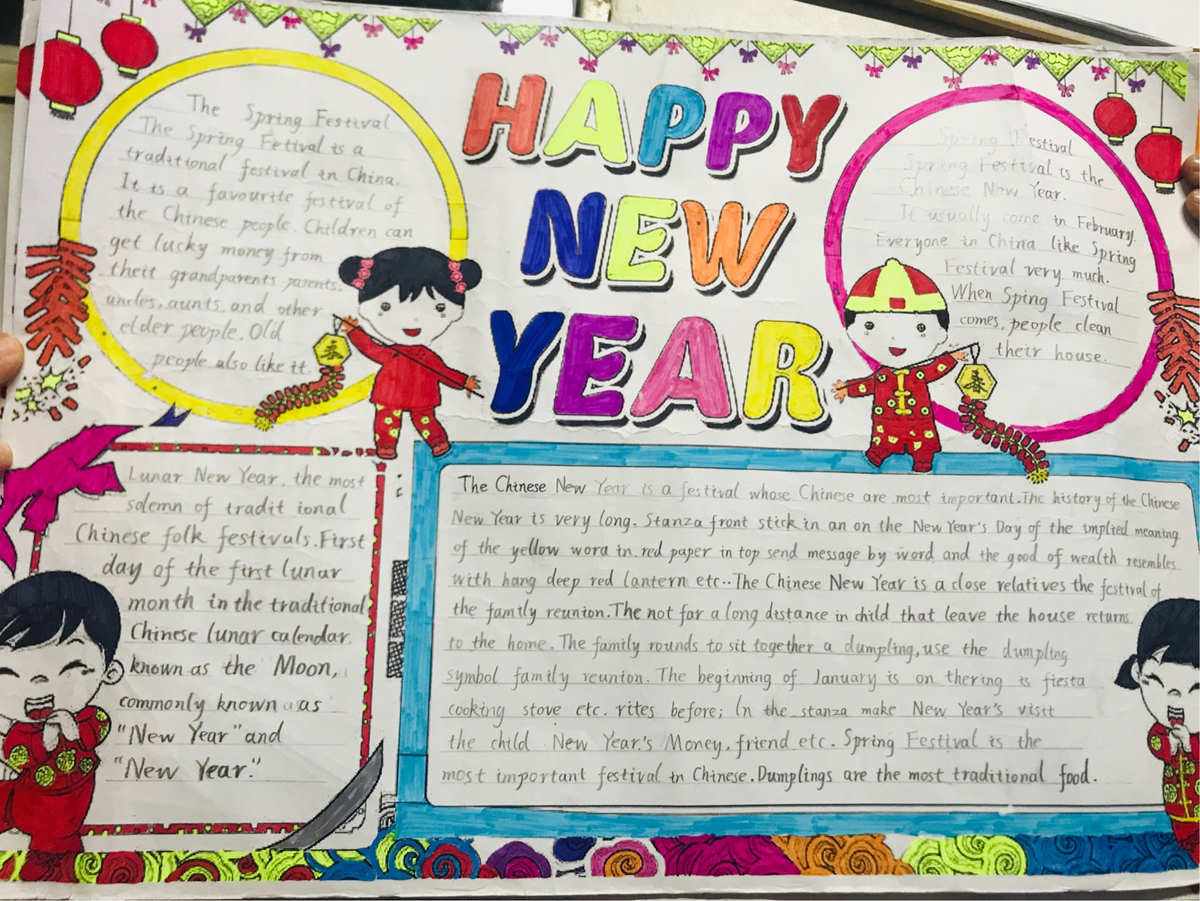 HAPPY
NEW
YEAR
The Spring Festival
The Spring Fetival is a
traditional festival in China.
It is a favourite festival of
the Chinese people. Children can
get lucky money from
their grandparents parents.
uncles, aunts and other
elder people. Old
people also like it.
春
Spring Festival
Spring Festival is the
Chinese New Year.
It usually come in February.
Everyone in China like Spring
Festival very much.
When Sping Festival
comes, people clean
their house.
春
Lunar New Year, the most
solemn of tradit ional
Chinese folk festivals. First
day of the first lunar
month in the traditional
Chinese lunar calendar.
known as the Moon,
commonly known as
"New Year" and
"New Year."
The Chinese New Year is a festival whose Chinese are most important. The history of the Chinese
New Year is very long. Stanza front stick in an on the New Year's Day of the implied meaning
of the yellow word in red paper in top send message by word and the good of wealth resembles
with hang deep red lantern etc.. The Chinese New Year is a close relatives the festival of
the family reunion. The not for a long distance in child that leave the house returns
to the home. The family rounds to sit together a dumpling, use the dumpling
symbol family reunion. The beginning of January is on thering is fiesta
cooking stove etc. rites before; In the stanza make New Year's visit
the child New Year.'s Money, friend etc. Spring Festival is the
most important festival in Chinese. Dumplings are the most traditional food.